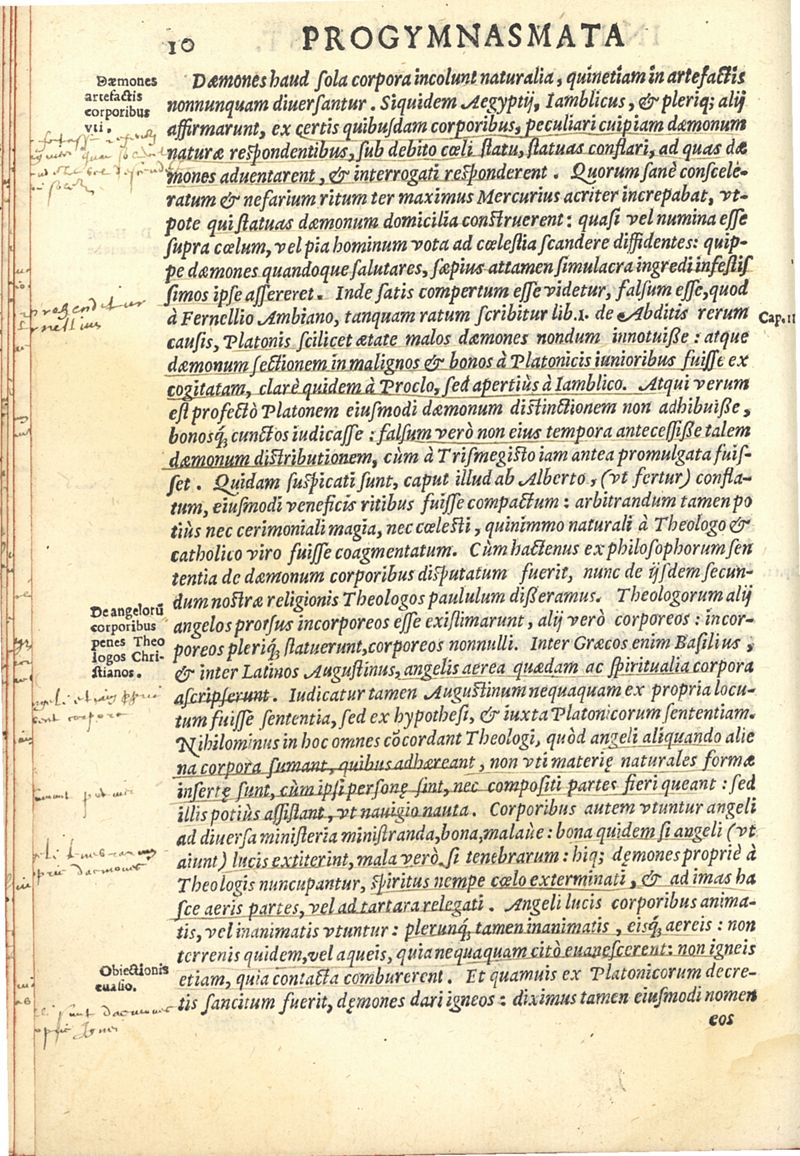 10 PROGYMNASMATA
Dæmones
artefactis
corporibus
vti.
Dæmones haud sola corpora incolunt naturalia, quinetiam in artefactis
nonnunquam diuersantur. Siquidem Aegyptij, Iamblicus, & pleriq; alij
affirmarunt, ex certis quibusdam corporibus, peculiari cuipiam dæmonum
naturæ respondentibus, sub debito cœli statu, statuas conflari, ad quas dæ
mones aduentarent, & interrogati responderent. Quorum sanè conscele-
ratum & nefarium ritum ter maximus Mercurius acriter increpabat, vt-
pote qui statuas dæmonum domicilia construerent: quasi vel numina esse
supra cœlum, vel pia hominum vota ad cœlestia scandere diffidentes: quip-
pe dæmones quandoque salutares, sæpius attamen simulacra ingredi infestis
simos ipse assereret. Inde satis compertum esse videtur, falsum esse, quod
à Fernellio Ambiano, tanquam ratum scribitur lib.1. de Abditis rerum
Cap.11
causis, Platonis scilicet ætate malos dæmones nondum innotuisse: atque
dæmonum sectionem in malignos & bonos à Platonicis iunioribus fuisse ex
cogitatam, clarè quidem à Proclo, sed apertiùs à Iamblico. Atqui verum
est profectò Platonem eiusmodi dæmonum distinctionem non adhibuisse,
bonosq́; cunctos iudicasse: falsum verò non eius tempora antecessisse talem
dæmonum distributionem, cùm à Trismegisto iam antea promulgata fuis-
set. Quidam suspicati sunt, caput illud ab Alberto, (vt fertur) confla-
tum, eiusmodi veneficis ritibus fuisse compactum: arbitrandum tamen po
tiùs nec cerimoniali magia, nec cœlesti, quinimmo naturali à Theologo &
catholico viro fuisse coagmentatum. Cùm hactenus ex philosophorum sen
tentia de dæmonum corporibus disputatum fuerit, nunc de ijsdem secun-
dum nostræ religionis Theologos paululum disseramus. Theologorum alij
De angelorũ
corporibus
penes Theo
logos Chri-
stianos.
angelos prorsus incorporeos esse existimarunt, alij verò corporeos: incor-
poreos pleriq́; statuerunt, corporeos nonnulli. Inter Græcos enim Basilius,
& inter Latinos Augustinus, angelis aerea quædam ac spiritualia corpora
ascripserunt. Iudicatur tamen Augustinum nequaquam ex propria locu-
tum fuisse sententia, sed ex hypothesi, & iuxta Platonicorum sententiam.
Nihilominus in hoc omnes cõcordant Theologi, quòd angeli aliquando alie
na corpora sumant, quibus adhæreant, non vti materię naturales formæ
insertę sunt, cùm ipsi personę sint, nec compositi partes fieri queant: sed
illis potiùs assistant, vt nauigio nauta. Corporibus autem vtuntur angeli
ad diuersa ministeria ministranda, bona, malaùe: bona quidem si angeli (vt
aiunt) lucis extiterint, mala verò si tenebrarum: hiq; dęmones propriè à
Theologis nuncupantur, spiritus nempe cœlo exterminati, & ad imas ha
sce aeris partes, vel ad tartara relegati. Angeli lucis corporibus anima-
tis, vel inanimatis vtuntur: plerunq́; tamen inanimatis, eisq́; aereis: non
terrenis quidem, vel aqueis, quia nequaquam citò euanescerent: non igneis
Obiectionis
euasio.
etiam, quia contacta comburerent. Et quamuis ex Platonicorum decre-
tis sancitum fuerit, dęmones dari igneos: diximus tamen eiusmodi nomen
eos